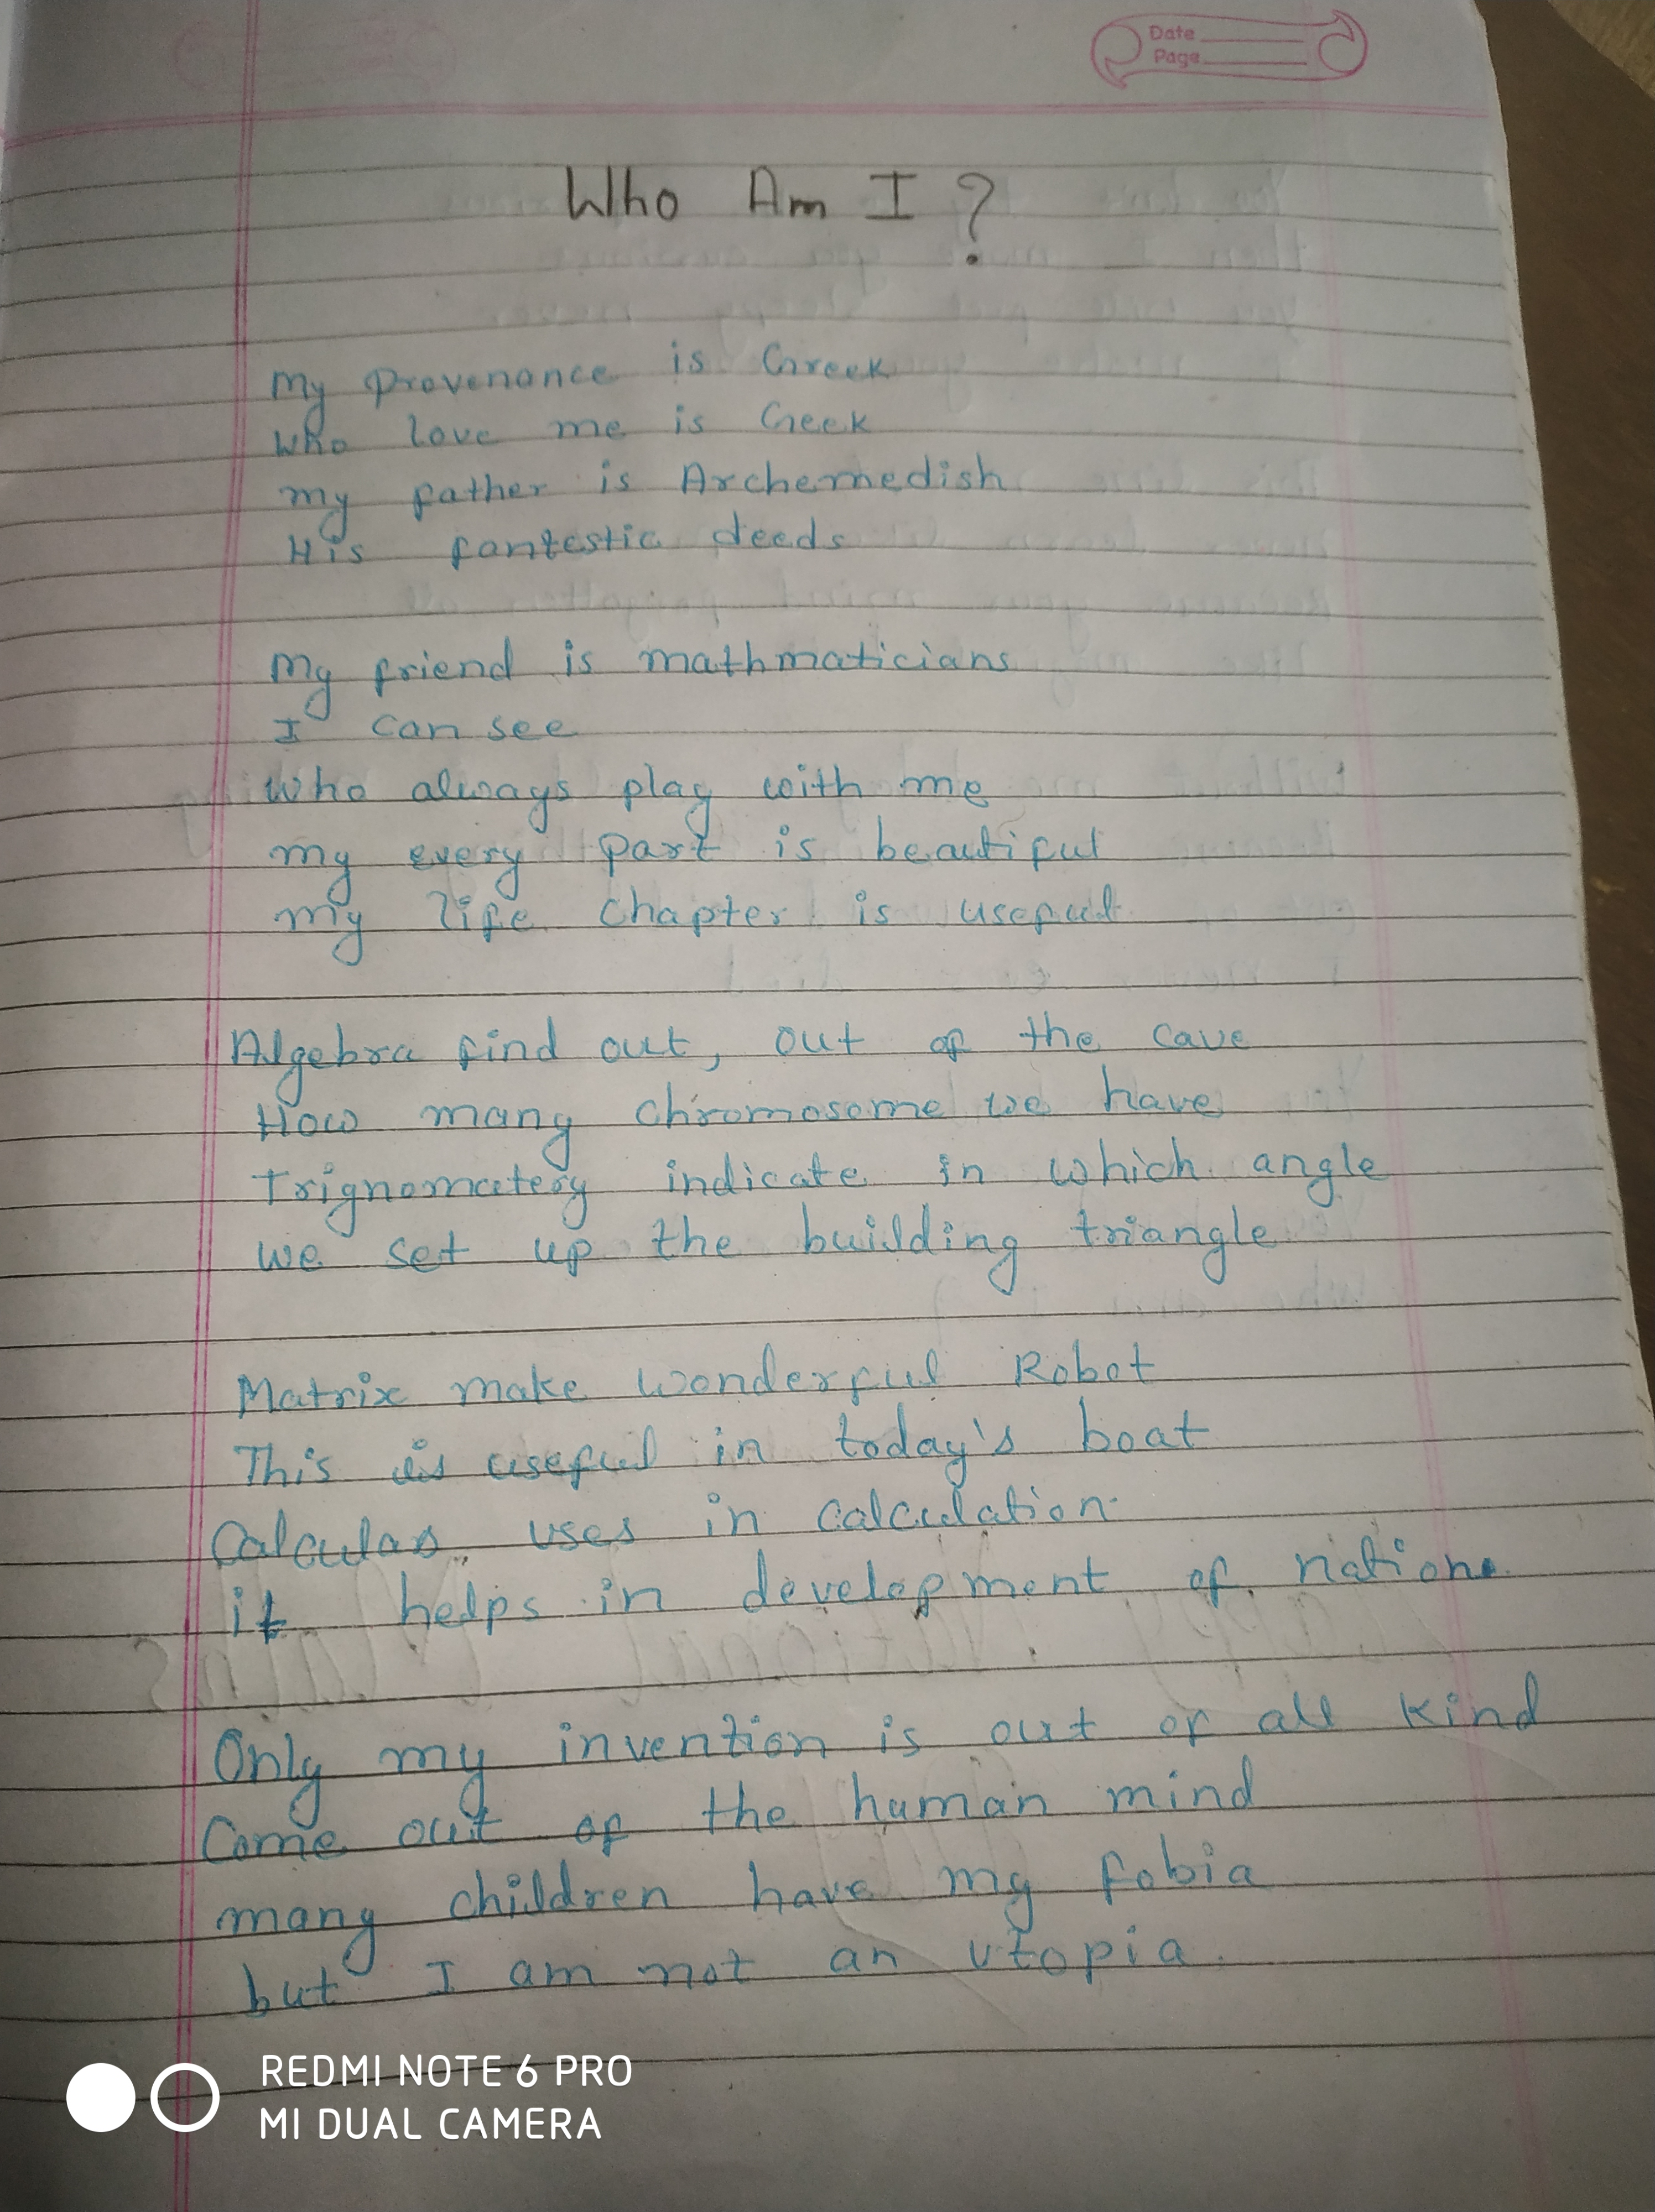 Date
Page
Who Am I ?
My Provenance is Greek
Who love me is Geek
my father is Archemedish
His fantestic deeds
My friend is mathmaticians
I can see
who always play with me
my every part is beautiful
my life chapter is useful
Algebra find out, out of the cave
How many chromosome we have
Trignomatery indicate in which angle
we set up the building triangle
Matrix make wonderful Robot
This is useful in today's boat
Calculas uses in calculation
it helps in development of nation
Only my invention is out of all kind
Come out of the human mind
many children have my fobia
but I am not an utopia.
REDMI NOTE 6 PRO
MI DUAL CAMERA